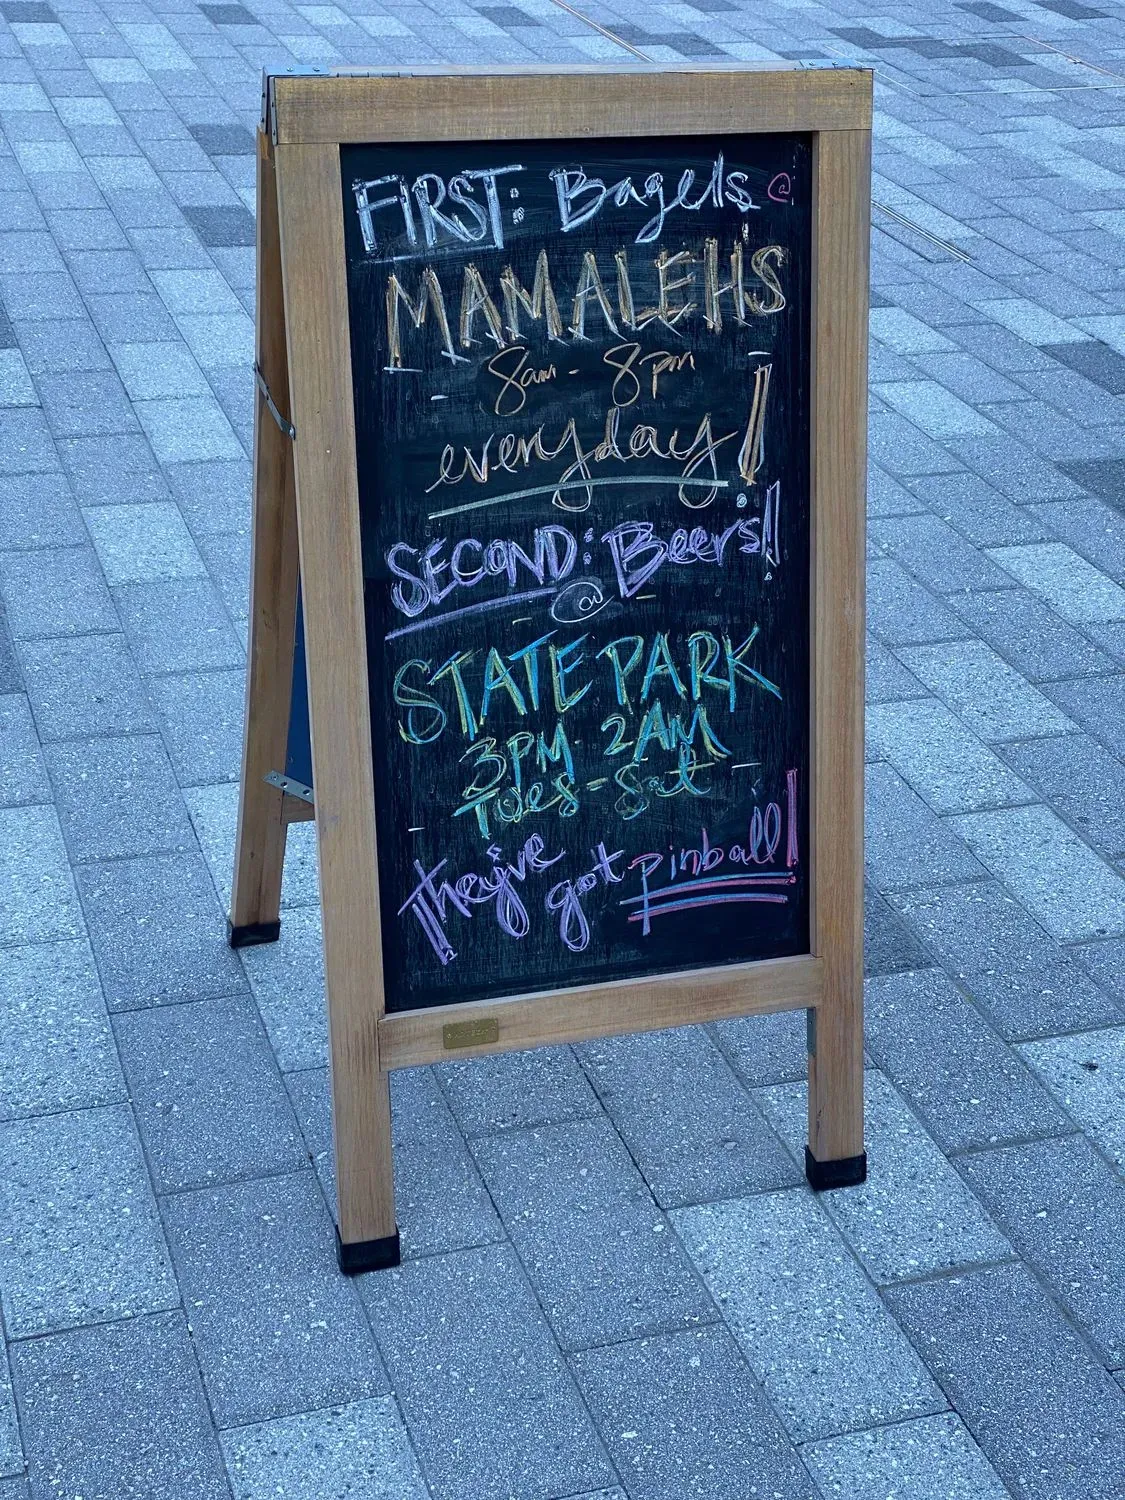 FIRST: Bagels @
MAMALEH'S
8am - 8pm
everyday!
SECOND: Beers!
@
STATE PARK
3PM - 2AM
Tues - Sat
they've got pinball!